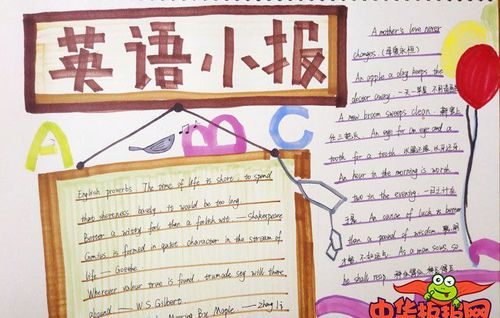 英语小报
A B C
English proverbs The time of life is short, to spend
that shortness basely, it would be too long
Better a witty fool than a foolish wit. —Shakespeare
Genius is formed in quiet, character in the stream of
life —Goethe
Wherever valour true is found, true modesty will there
abound —W.S. Gilbert
A mother's love never
changes. (母爱永恒)
An apple a day keeps the
doctor away. 一天一苹果 不用请医生
A new broom sweeps clean. 新官上
任三把火 An eye for an eye and a
tooth for a tooth 以眼还眼 以牙还牙
An hour in the morning is worth
two in the evening 一日之计在
于晨 An ounce of luck is better
than a pound of wisdom
As a man sows, so
he shall reap.
中华拼拼网